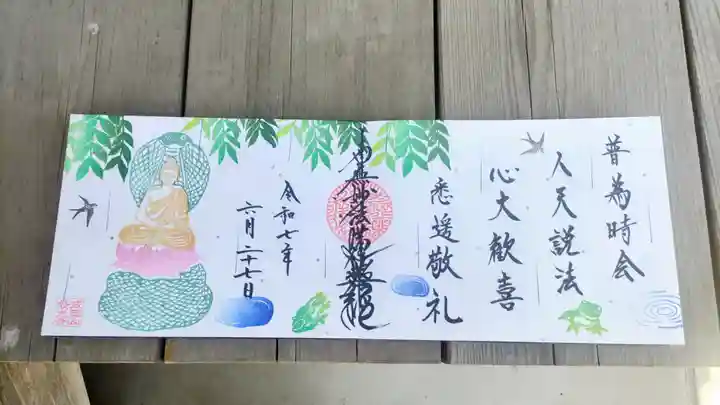 普為時会
人天説法
心大歓喜
悉遥敬礼
令和七年
六月二十七日